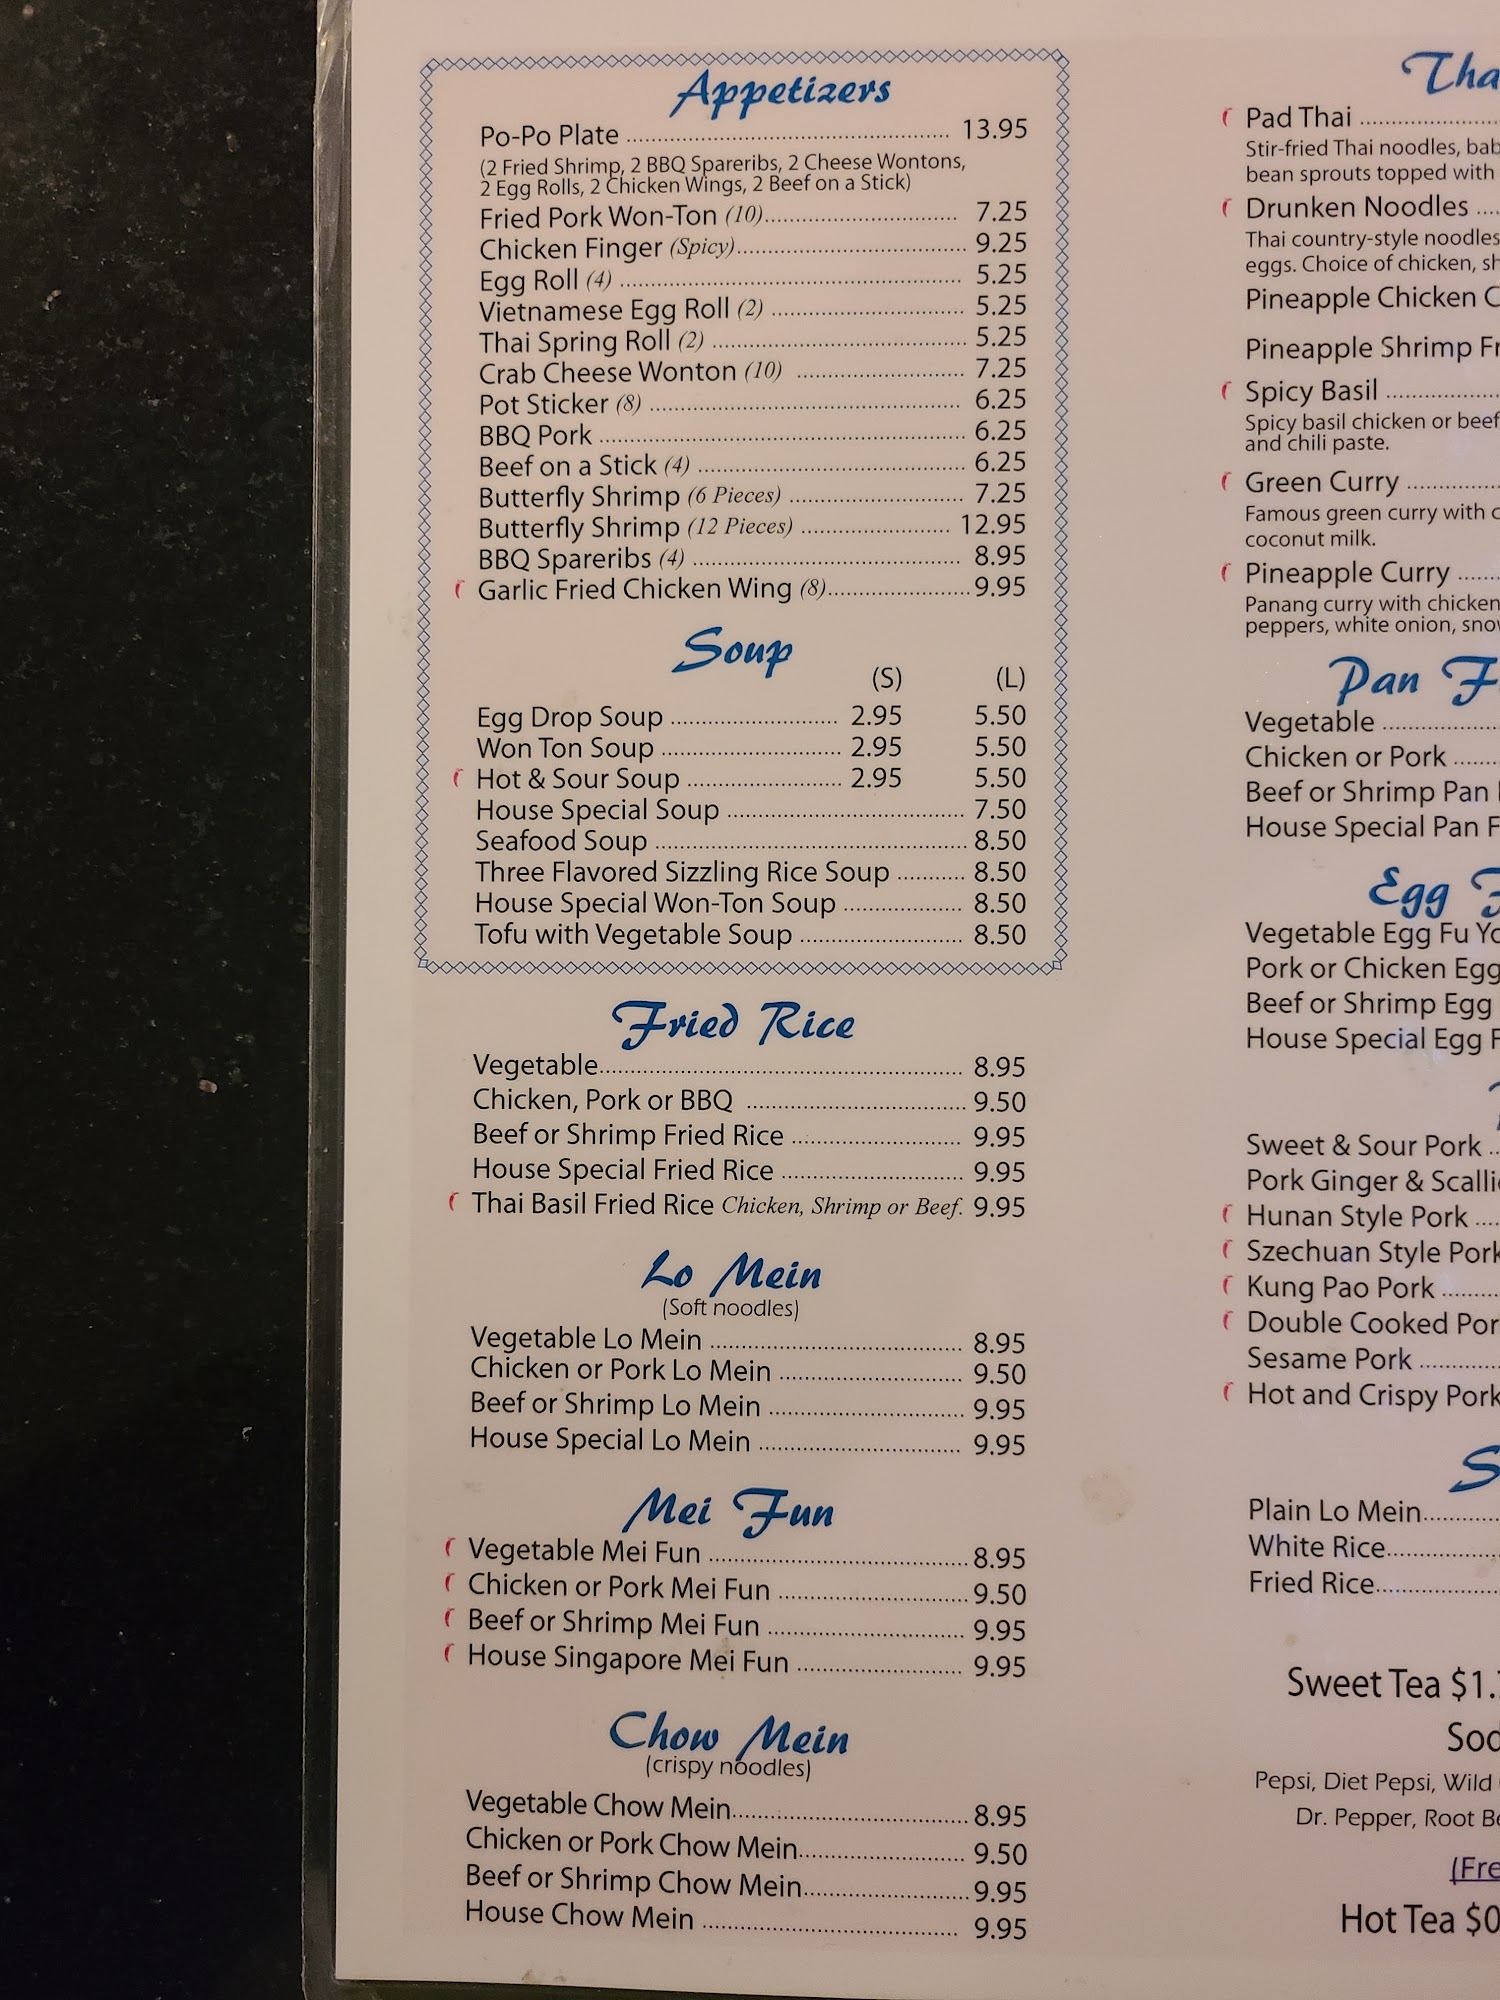 Appetizers
Po-Po Plate 13.95
(2 Fried Shrimp, 2 BBQ Spareribs, 2 Cheese Wontons,
2 Egg Rolls, 2 Chicken Wings, 2 Beef on a Stick)
Fried Pork Won-Ton (10) 7.25
Chicken Finger (Spicy) 9.25
Egg Roll (4) 5.25
Vietnamese Egg Roll (2) 5.25
Thai Spring Roll (2) 5.25
Crab Cheese Wonton (10) 7.25
Pot Sticker (8) 6.25
BBQ Pork 6.25
Beef on a Stick (4) 6.25
Butterfly Shrimp (6 Pieces) 7.25
Butterfly Shrimp (12 Pieces) 12.95
BBQ Spareribs (4) 8.95
Garlic Fried Chicken Wing (8) 9.95
Soup
(S) (L)
Egg Drop Soup 2.95 5.50
Won Ton Soup 2.95 5.50
Hot & Sour Soup 2.95 5.50
House Special Soup 7.50
Seafood Soup 8.50
Three Flavored Sizzling Rice Soup 8.50
House Special Won-Ton Soup 8.50
Tofu with Vegetable Soup 8.50
Fried Rice
Vegetable 8.95
Chicken, Pork or BBQ 9.50
Beef or Shrimp Fried Rice 9.95
House Special Fried Rice 9.95
Thai Basil Fried Rice Chicken, Shrimp or Beef. 9.95
Lo Mein
(Soft noodles)
Vegetable Lo Mein 8.95
Chicken or Pork Lo Mein 9.50
Beef or Shrimp Lo Mein 9.95
House Special Lo Mein 9.95
Mei Fun
Vegetable Mei Fun 8.95
Chicken or Pork Mei Fun 9.50
Beef or Shrimp Mei Fun 9.95
House Singapore Mei Fun 9.95
Chow Mein
(crispy noodles)
Vegetable Chow Mein 8.95
Chicken or Pork Chow Mein 9.50
Beef or Shrimp Chow Mein 9.95
House Chow Mein 9.95
Tha
Pad Thai
Stir-fried Thai noodles, bab
bean sprouts topped with
Drunken Noodles
Thai country-style noodles
eggs. Choice of chicken, sh
Pineapple Chicken C
Pineapple Shrimp Fr
Spicy Basil
Spicy basil chicken or beef
and chili paste.
Green Curry
Famous green curry with c
coconut milk.
Pineapple Curry
Panang curry with chicken
peppers, white onion, snow
Pan F
Vegetable
Chicken or Pork
Beef or Shrimp Pan
House Special Pan F
Egg F
Vegetable Egg Fu Yo
Pork or Chicken Egg
Beef or Shrimp Egg
House Special Egg F
Sweet & Sour Pork
Pork Ginger & Scallio
Hunan Style Pork
Szechuan Style Pork
Kung Pao Pork
Double Cooked Por
Sesame Pork
Hot and Crispy Pork
S
Plain Lo Mein
White Rice
Fried Rice
Sweet Tea $1.
Sod
Pepsi, Diet Pepsi, Wild
Dr. Pepper, Root Be
(Fre
Hot Tea $0